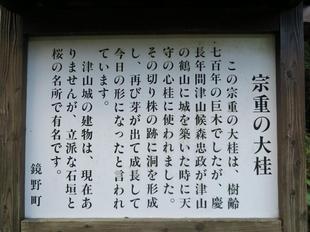 宗重の大桂
この宗重の大桂は、樹齢
七百年の巨木でしたが、慶
長年間津山候森忠政が津山
の鶴山に城を築いた時に天
守の心桂に使われました。
その切り株の跡に洞を形成
し、再び芽が出て成長して
今日の形になったと言われ
ています。
津山城の建物は、現在あ
りませんが、立派な石垣と
桜の名所で有名です。
鏡野町